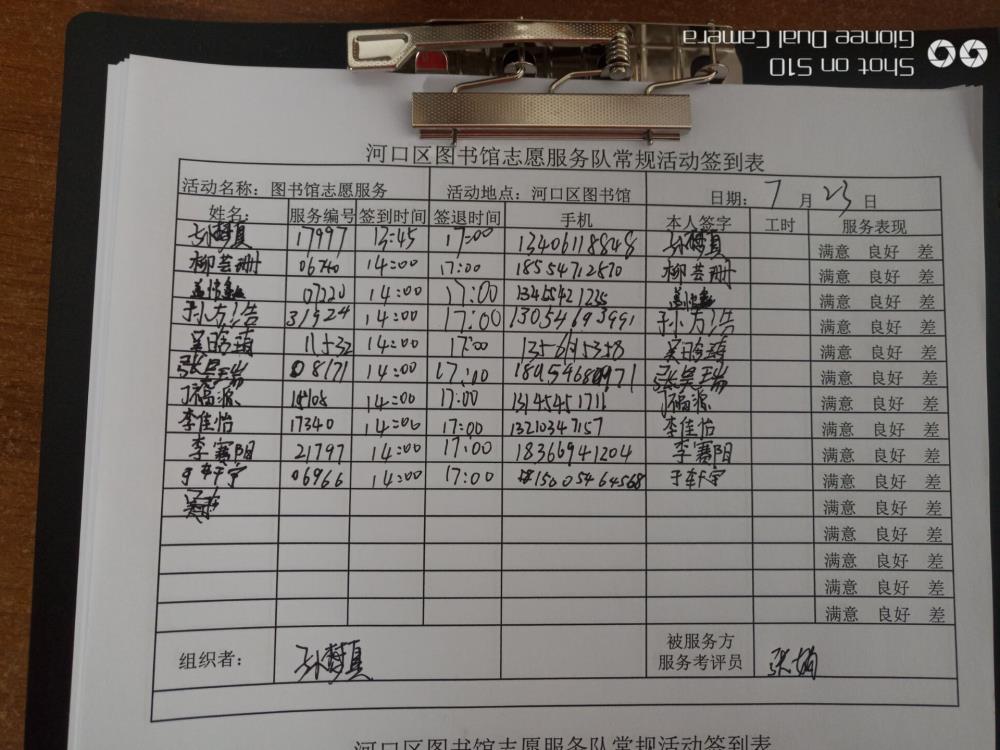 Shot on S10
Gionee Dual Camera
河口区图书馆志愿服务队常规活动签到表
活动名称：图书馆志愿服务 活动地点：河口区图书馆 日期： 7 月 23 日
姓名： 服务编号 签到时间 签退时间 手机 本人签字 工时 服务表现
孙梦真 17997 13:45 17:00 13406118848 孙梦真 满意 良好 差
柳芸珊 06740 14:00 17:00 18554712870 柳芸珊 满意 良好 差
07220 14:00 17:00 13455421235 满意 良好 差
31924 14:00 17:00 13054693991 满意 良好 差
11532 14:00 17:00 满意 良好 差
张昊瑞 08171 14:00 17:00 张昊瑞 满意 良好 差
14:00 17:00 满意 良好 差
李佳怡 17340 14:00 17:00 13210347157 李佳怡 满意 良好 差
李赛阳 21797 14:00 17:00 18366941204 李赛阳 满意 良好 差
06966 14:00 17:00 15005464568 满意 良好 差
满意 良好 差
满意 良好 差
满意 良好 差
满意 良好 差
满意 良好 差
组织者： 孙梦真 被服务方
服务考评员
河口区图书馆志愿服务队常规活动签到表